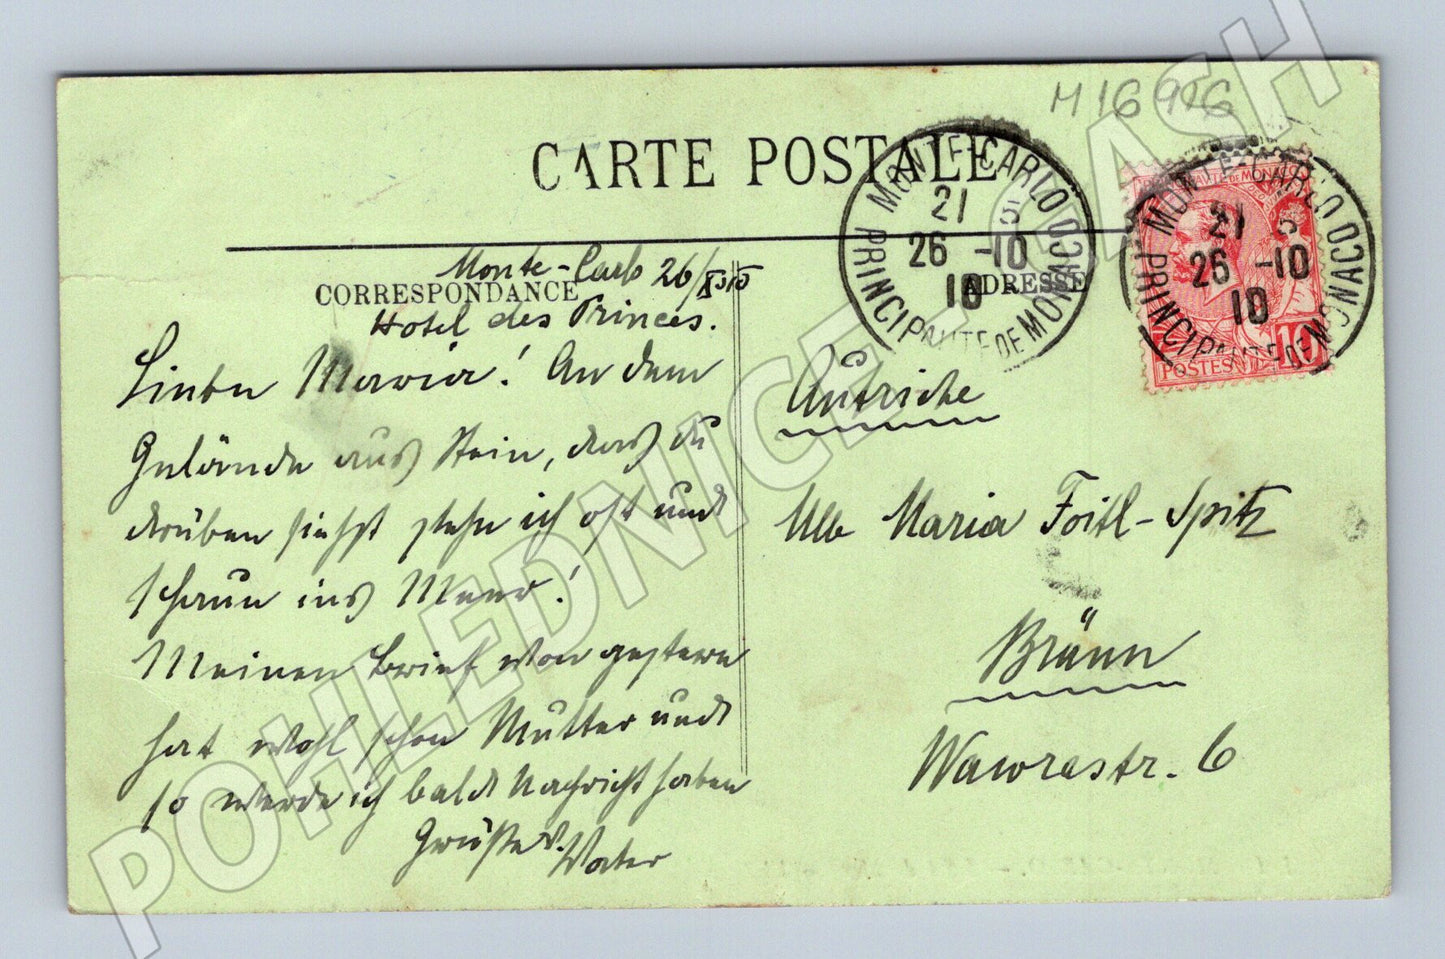 M 16926
CARTE POSTALE
MONTE-CARLO
21 5
26 -10
10
PRINCIPAUTE DE MONACO
MONTE-CARLO
21 5
26 -10
10
PRINCIPAUTE DE MONACO
POSTES 10
CORRESPONDANCE
ADRESSE
Monte-Carlo 26/X
Hotel des Princes.
Liebe Maria! An dem
Gelände aus Stein, das du
drüben siehst stehe ich oft und
schaue ins Meer!
Meinen Brief von gestern
hat wohl schon Mutter und
so werde ich bald Nachricht haben
Grüsse Vater
Autriche
Maria Foitl-Spitz
Brünn
Wawrastr. 6
POHLEDNICE-CASH